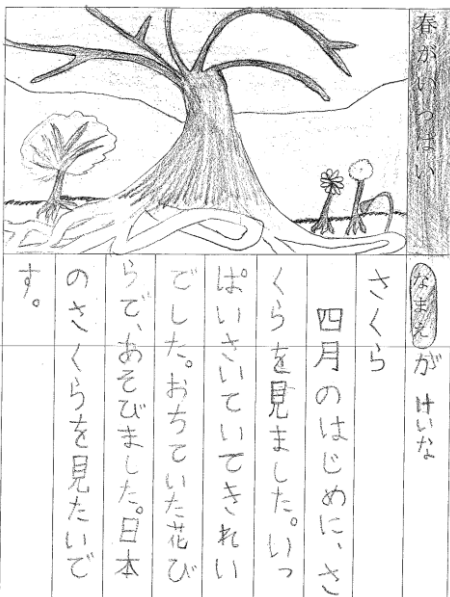 春がいっぱい
なまえ が けいな
さくら
四月のはじめに、さ
くらを見ました。いっ
ぱいさいていてきれい
でした。おちていた花び
らで、あそびました。日本
のさくらを見たいで
す。